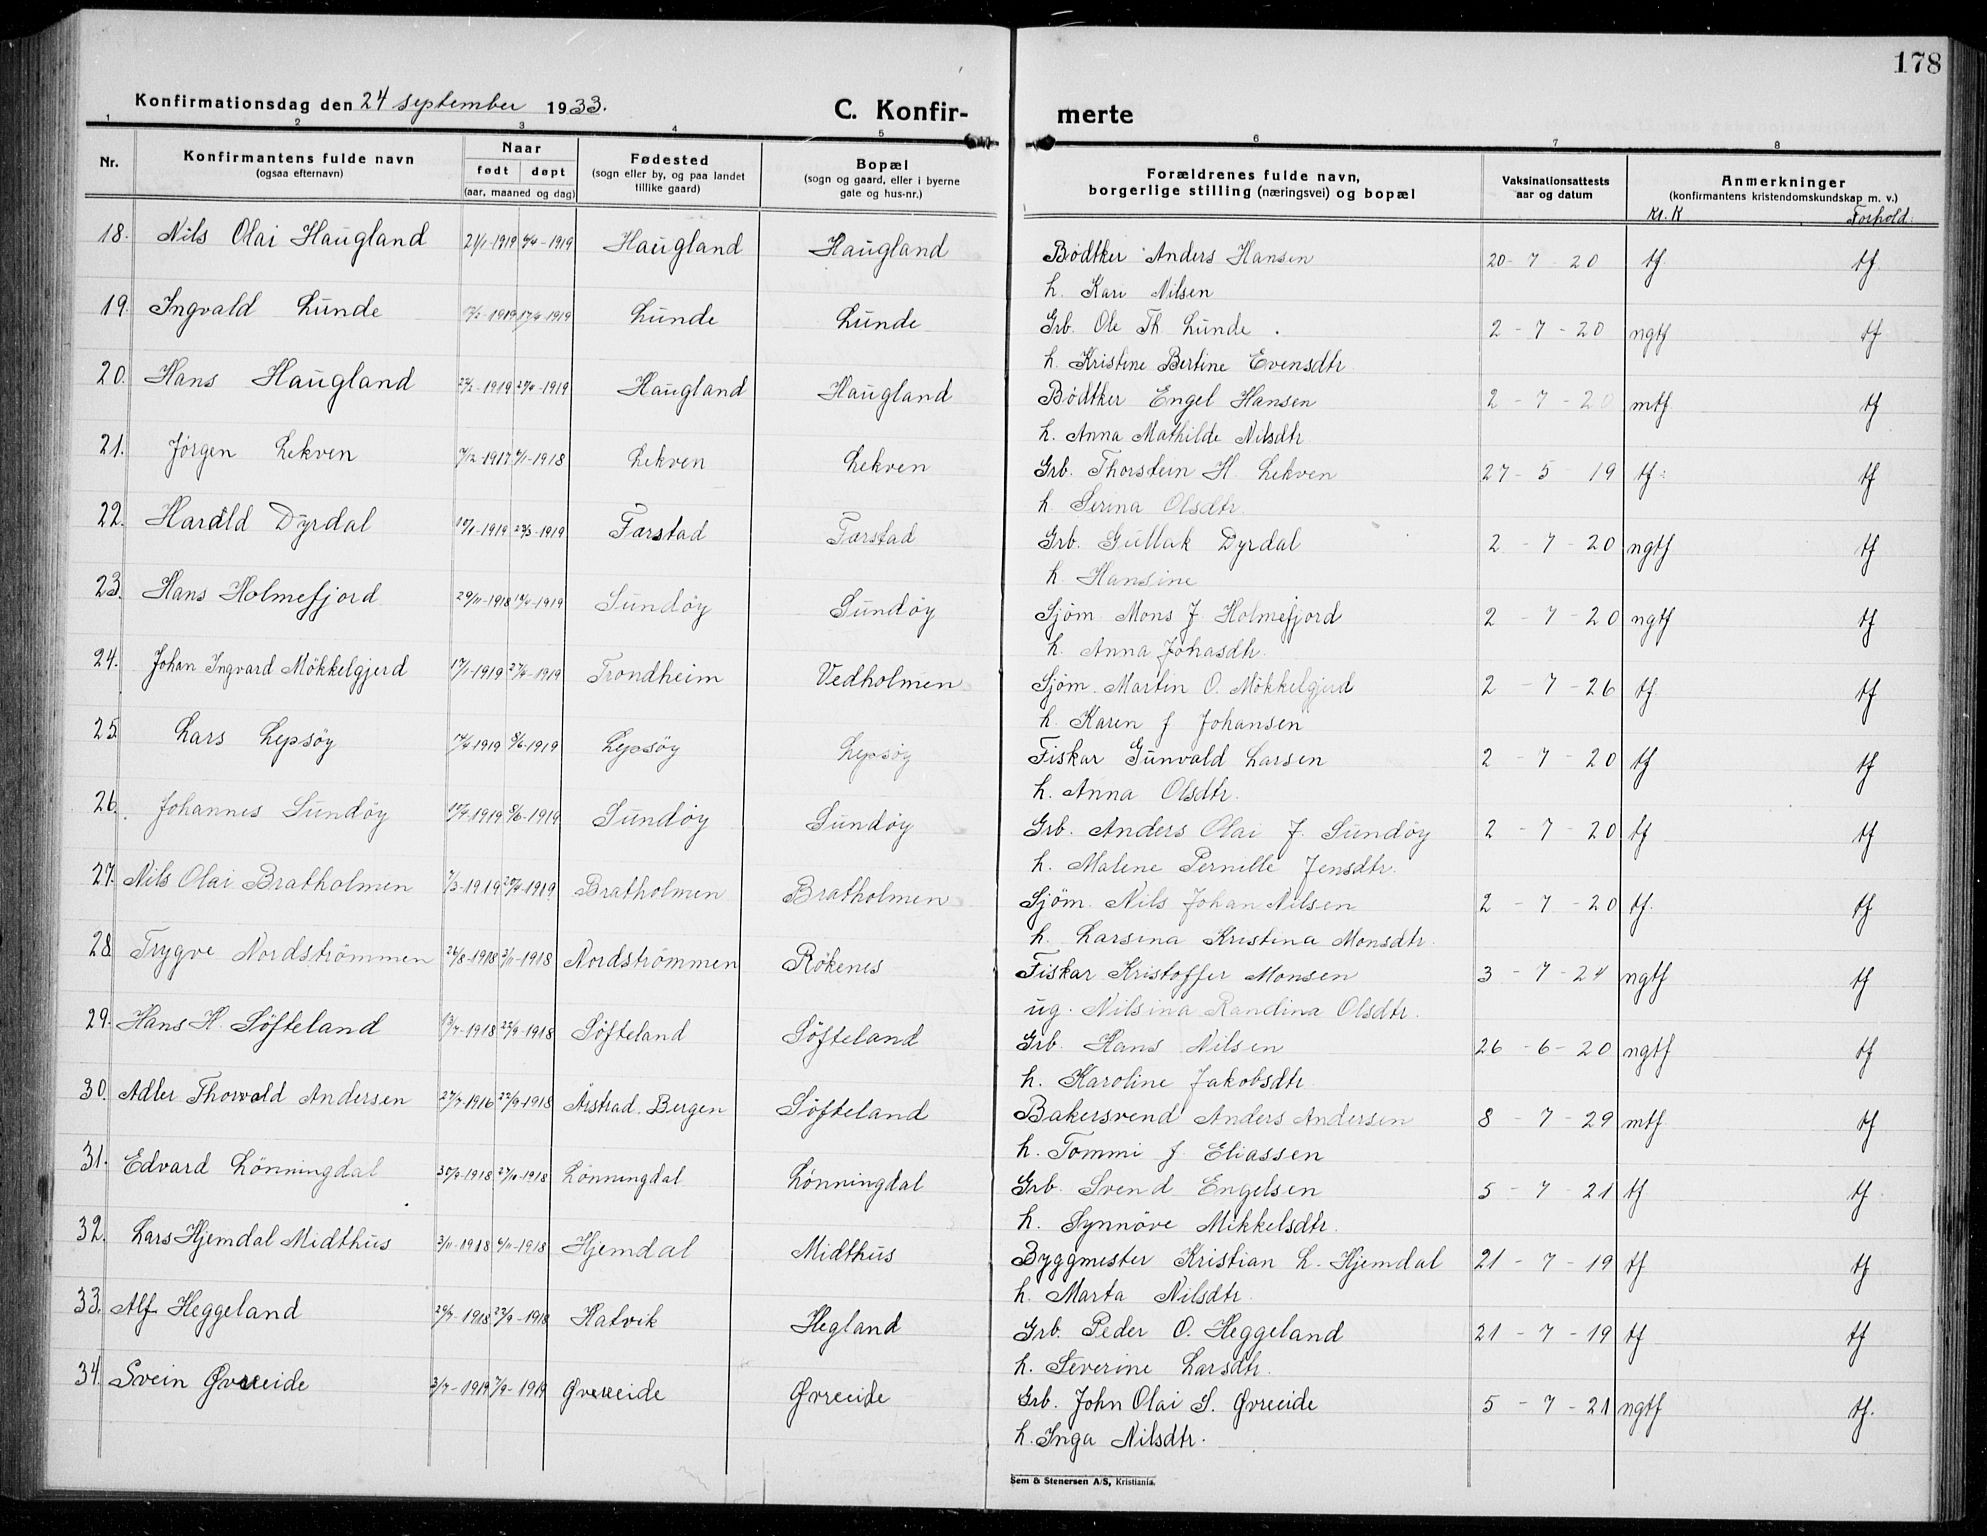 178
Konfirmationsdag den 24 september 1933.
C. Konfir-
merte
1 2 3 4 5 6 7 8
Nr.
Konfirmantens fulde navn
(ogsaa efternavn)
Naar
født døpt
(aar, maaned og dag)
Fødested
(sogn eller by, og paa landet
tillike gaard)
Bopæl
(sogn og gaard, eller i byerne
gate og hus-nr.)
Forældrenes fulde navn,
borgerlige stilling (næringsvei) og bopæl
Vaksinationsattests
aar og datum
Anmerkninger
(konfirmantens kristendomskundskap m. v.)
Kr. K Forhold.
18. Nils Olai Haugland 1919 1919 Haugland Haugland Bødtker Anders Hansen 20-7-20 tf tf
h. Kari Nilsen
19. Ingvald Lunde 1919 17/4-1919 Lunde Lunde Grb. Ole Th. Lunde. 2-7-20 ngtf tf
h. Kristine Bertine Evensdtr
20. Hans Haugland 1919 1919 Haugland Haugland Bødtker Engel Hansen 2-7-20 mtf tf
h. Anna Mathilde Nilsdtr.
21. Jørgen Lekven 1917 1918 Lekven Lekven Grb. Thorstein H. Lekven 27-5 19 tf tf
h. Serina Olsdtr.
22. Harald Dyrdal 1919 23/3-1919 Farstad Farstad Grb. Gullak Dyrdal 2-7-20 ngtf tf
h. Hansine
23. Hans Holmefjord 29/11-1918 1919 Sundøy Sundøy Sjøm Mons J Holmefjord 2-7-20 ngtf tf
h. Anna Johasdtr.
24. Johan Ingvard Møkkelgjerd 17/1-1919 27/4-1919 Trondheim Vedholmen Sjøm. Martin O. Møkkelgjerd 2-7-26 tf tf
h. Karen f Johansen
25. Lars Lepsøy 1919 8/6-1919 Lepsøy Lepsøy Fiskar Gunvald Larsen 2-7-20 tf tf
h. Anna Olsdtr.
26. Johannes Sundøy 1919 8/6-1919 Sundøy Sundøy Grb. Anders Olai J. Sundøy 2-7-20 tf tf
h. Malene Pernille Jensdtr.
27. Nils Olai Bratholmen 1919 1919 Bratholmen Bratholmen Sjøm. Nils Johan Nilsen 2-7-20 tf. tf
h. Larsina Kristina Monsdtr.
28. Trygve Nordstrømmen 1918 3/11-1918 Nordstrømmen Røkenes Fiskar Kristoffer Monsen 3-7-24 ngtf tf
ug. Nilsina Randina Olsdtr.
29. Hans H. Søfteland 13/7-1918 22/9-1918 Søfteland Søfteland Grb. Hans Nilsen 26-6-20 ngtf tf
h. Karoline Jakobsdtr.
30. Adler Thorvald Andersen 27/7-1916 22/9-1918 Årstad. Bergen Søfteland Bakersvend Anders Andersen 8-7-29 mtf tf
h. Tommi f. Eliassen
31. Edvard Lønningdal 1918 27/10-1918 Lønningdal Lønningdal Grb. Svend Engelsen 5-7-21 tf tf
h. Synnøve Mikkelsdtr.
32. Lars Hjemdal Midthus 1918 1918 Hjemdal Midthus Byggmester Kristian L. Hjemdal 21-7-19 tf tf
h. Marta Nilsdtr.
33. Alf Heggeland 1918 22/9-1918 Hatvik Hegland Grb. Peder O. Heggeland 21-7-19 tf tf
h. Severine Larsdtr.
34. Svein Øvreeide 3/7-1919 7/9-1919 Øvreeide Øvreeide Grb. John Olai S. Øvreeide 5-7-21 ngtf tf.
h. Inga Nilsdtr.
Sem & Stenersen A/S, Kristiania.